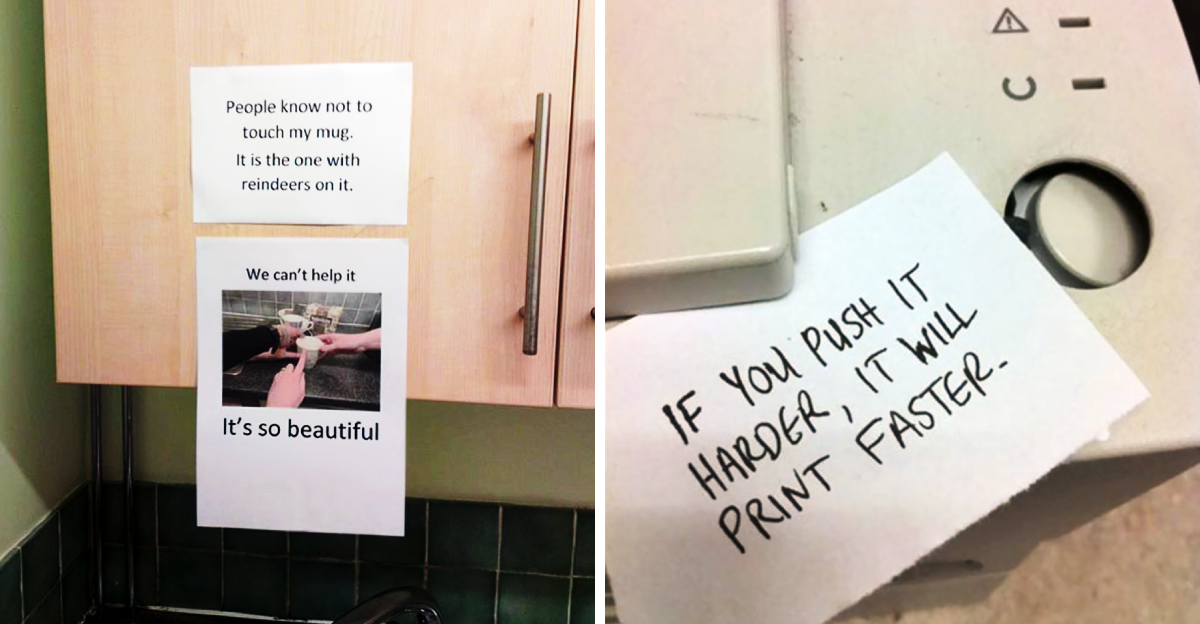 People know not to
touch my mug.
It is the one with
reindeers on it.
We can't help it
It's so beautiful
IF YOU PUSH IT
HARDER, IT WILL
PRINT FASTER.